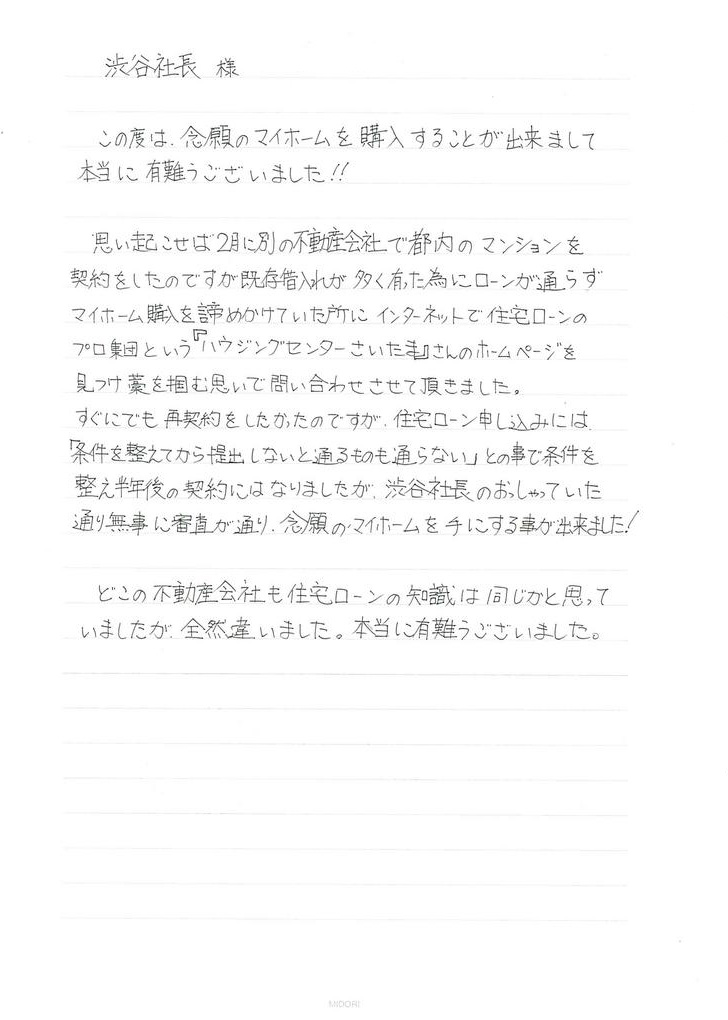 渋谷社長 様
この度は、念願のマイホームを購入することが出来まして
本当に有難うございました!!
思い起こせば2月に別の不動産会社で都内のマンションを
契約をしたのですが既存借入れが多く有った為にローンが通らず
マイホーム購入を諦めかけていた所にインターネットで住宅ローンの
プロ集団という『ハウジングセンターさいたま』さんのホームページを
見つけ藁を掴む思いで問い合わせさせて頂きました。
すぐにでも再契約をしたかったのですが、住宅ローン申し込みには、
「条件を整えてから提出しないと通るものも通らない」との事で条件を
整え半年後の契約にはなりましたが、渋谷社長のおっしゃっていた
通り無事に審査が通り、念願のマイホームを手にする事が出来ました!
どこの不動産会社も住宅ローンの知識は同じかと思って
いましたが、全然違いました。本当に有難うございました。
MIDORI